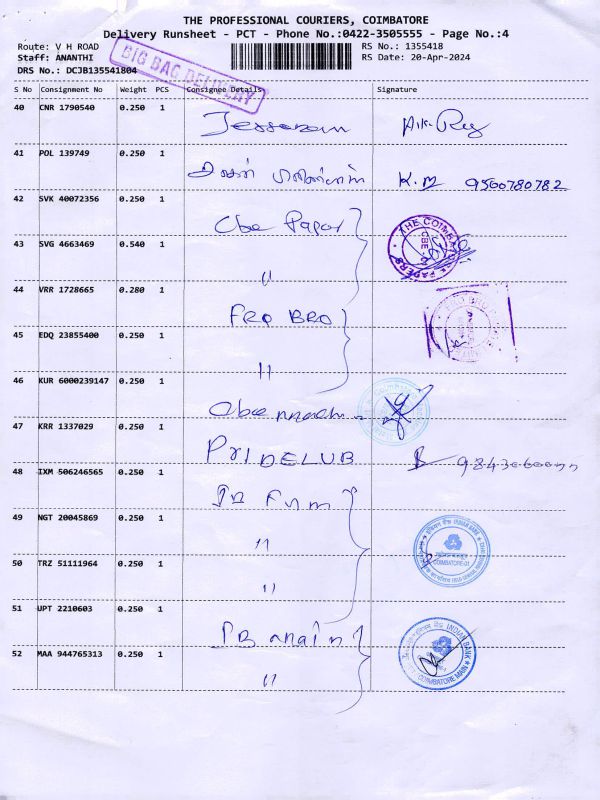 THE PROFESSIONAL COURIERS, COIMBATORE
Delivery Runsheet - PCT - Phone No.:0422-3505555 - Page No.:4
Route: V H ROAD RS No.: 1355418
Staff: ANANTHI RS Date: 20-Apr-2024
DRS No.: DCJB135541804
BIG BAG DELIVERY
S No Consignment No Weight PCS Consignee Details Signature
40 CNR 1790540 0.250 1
41 POL 139749 0.250 1
K.M 9500780782
42 SVK 40072356 0.250 1
Cbe Paper
THE COIMBATORE PAPERS CBE
43 SVG 4663469 0.540 1
"
44 VRR 1728665 0.280 1
FRO BRO
45 EDQ 23855400 0.250 1
"
46 KUR 6000239147 0.250 1
Cbe
47 KRR 1337029 0.250 1
PRIDELUB
48 IXM 506246565 0.250 1
IB
49 NGT 20045869 0.250 1
"
INDIAN BANK COIMBATORE-01
50 TRZ 51111964 0.250 1
"
51 UPT 2210603 0.250 1
IB main
INDIAN BANK COIMBATORE MAIN
52 MAA 944765313 0.250 1
"